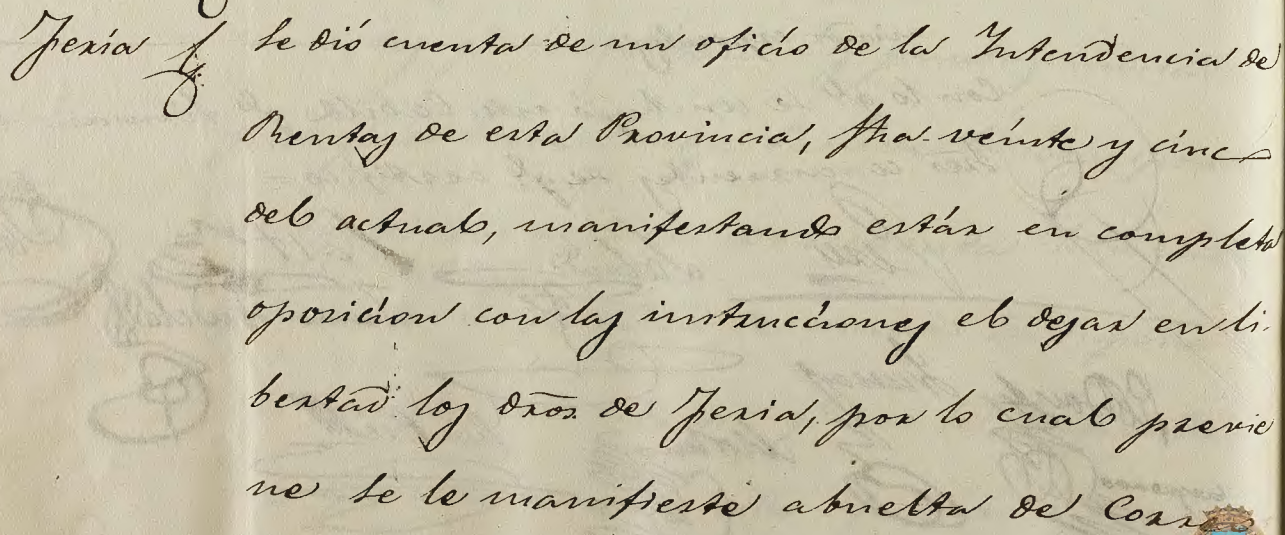 Feria
Se dió cuenta de un oficio de la Intendencia de
Rentas de esta Provincia, fha veinte y cinco
del actual, manifestando estár en completa
oposicion con las instrucciones el dejar en li-
bertad los dros. de Feria, por lo cual previe
ne se le manifieste abuelta de Correo